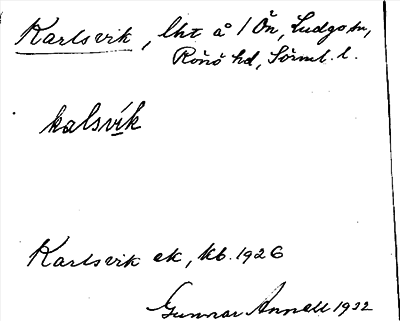 Karlsvik, lht å /Ön, Ludgo sn,
Rönö hd, Sörml. l.
kalsvík
Karlsvik ek, kb. 1926
Gunnar Annell 1932